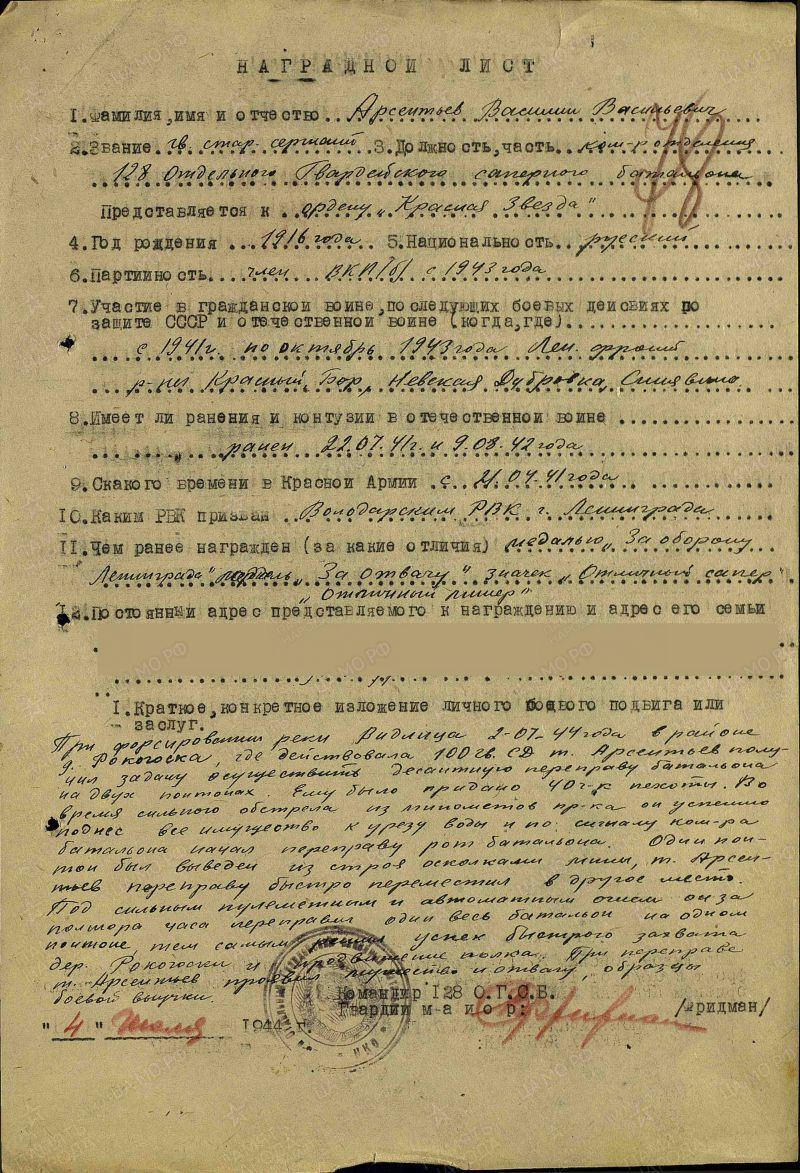 НАГРАДНОЙ ЛИСТ
1. Фамилия, имя и отчество Арсентьев Василий Васильевич
2. Звание гв. стар. сержант 3. Должность, часть ком-р отделения
128 Отдельного Гвардейского саперного батальона
Представляется к ордену „Красная Звезда"
4. Год рождения 1916 года 5. Национальность русский
6. Партийность член ВКП/б/ с 1943 года
7. Участие в гражданской войне, последующих боевых деисвиях по
защите СССР и отечественной войне (когда, где)
с 1941г. по октябрь 1943 года Лен. фронт
р-ны Красный Бор, Невская Дубровка, Синявино
8. Имеет ли ранения и контузии в отечественной войне
ранен 22.07.41г. и 9.08.42 года
9. Скакого времени в Красной Армии с 21.04.41 года
10. Каким РВК призван Володарским РВК г. Ленинграда
11. Чем ранее награжден (за какие отличия) медалью „За оборону
Ленинграда" медаль „За отвагу" значек „Отличный сапер"
„Отличный минер"
12. Постоянный адрес представляемого к награждению и адрес его семьи
1. Краткое, конкретное изложение личного боевого подвига или
заслуг.
При форсировании реки Видлица 2-07-44 года в районе
д. Рокогоска, где действовала 100 гв. СД т. Арсентьев полу-
чил задачу осуществить десантную переправу батальона
на двух понтонах. Ему было придано 40 ч-к пехоты. Во
время сильного обстрела из минометов пр-ка он успешно
поднес все имущество к урезу воды и по сигналу ком-ра
батальона начал переправу рот батальона. Один пон-
тон был выведен из строя осколками мины, т. Арсен-
тьев переправу быстро переместил в другое место.
Под сильным пулеметным и автоматным огнем он за
полтора часа переправил один весь батальон на одном
понтоне, тем самым успех быстрого захвата
дер. Рокогоски и продвижение полка. При переправе
т. Арсентьев проявил мужество и отвагу, образцы
боевой выучки.
Командир 128 О.Г.С.Б.
Гвардии м-а и о р: /Фридман/
"4" Июля 1944 г.